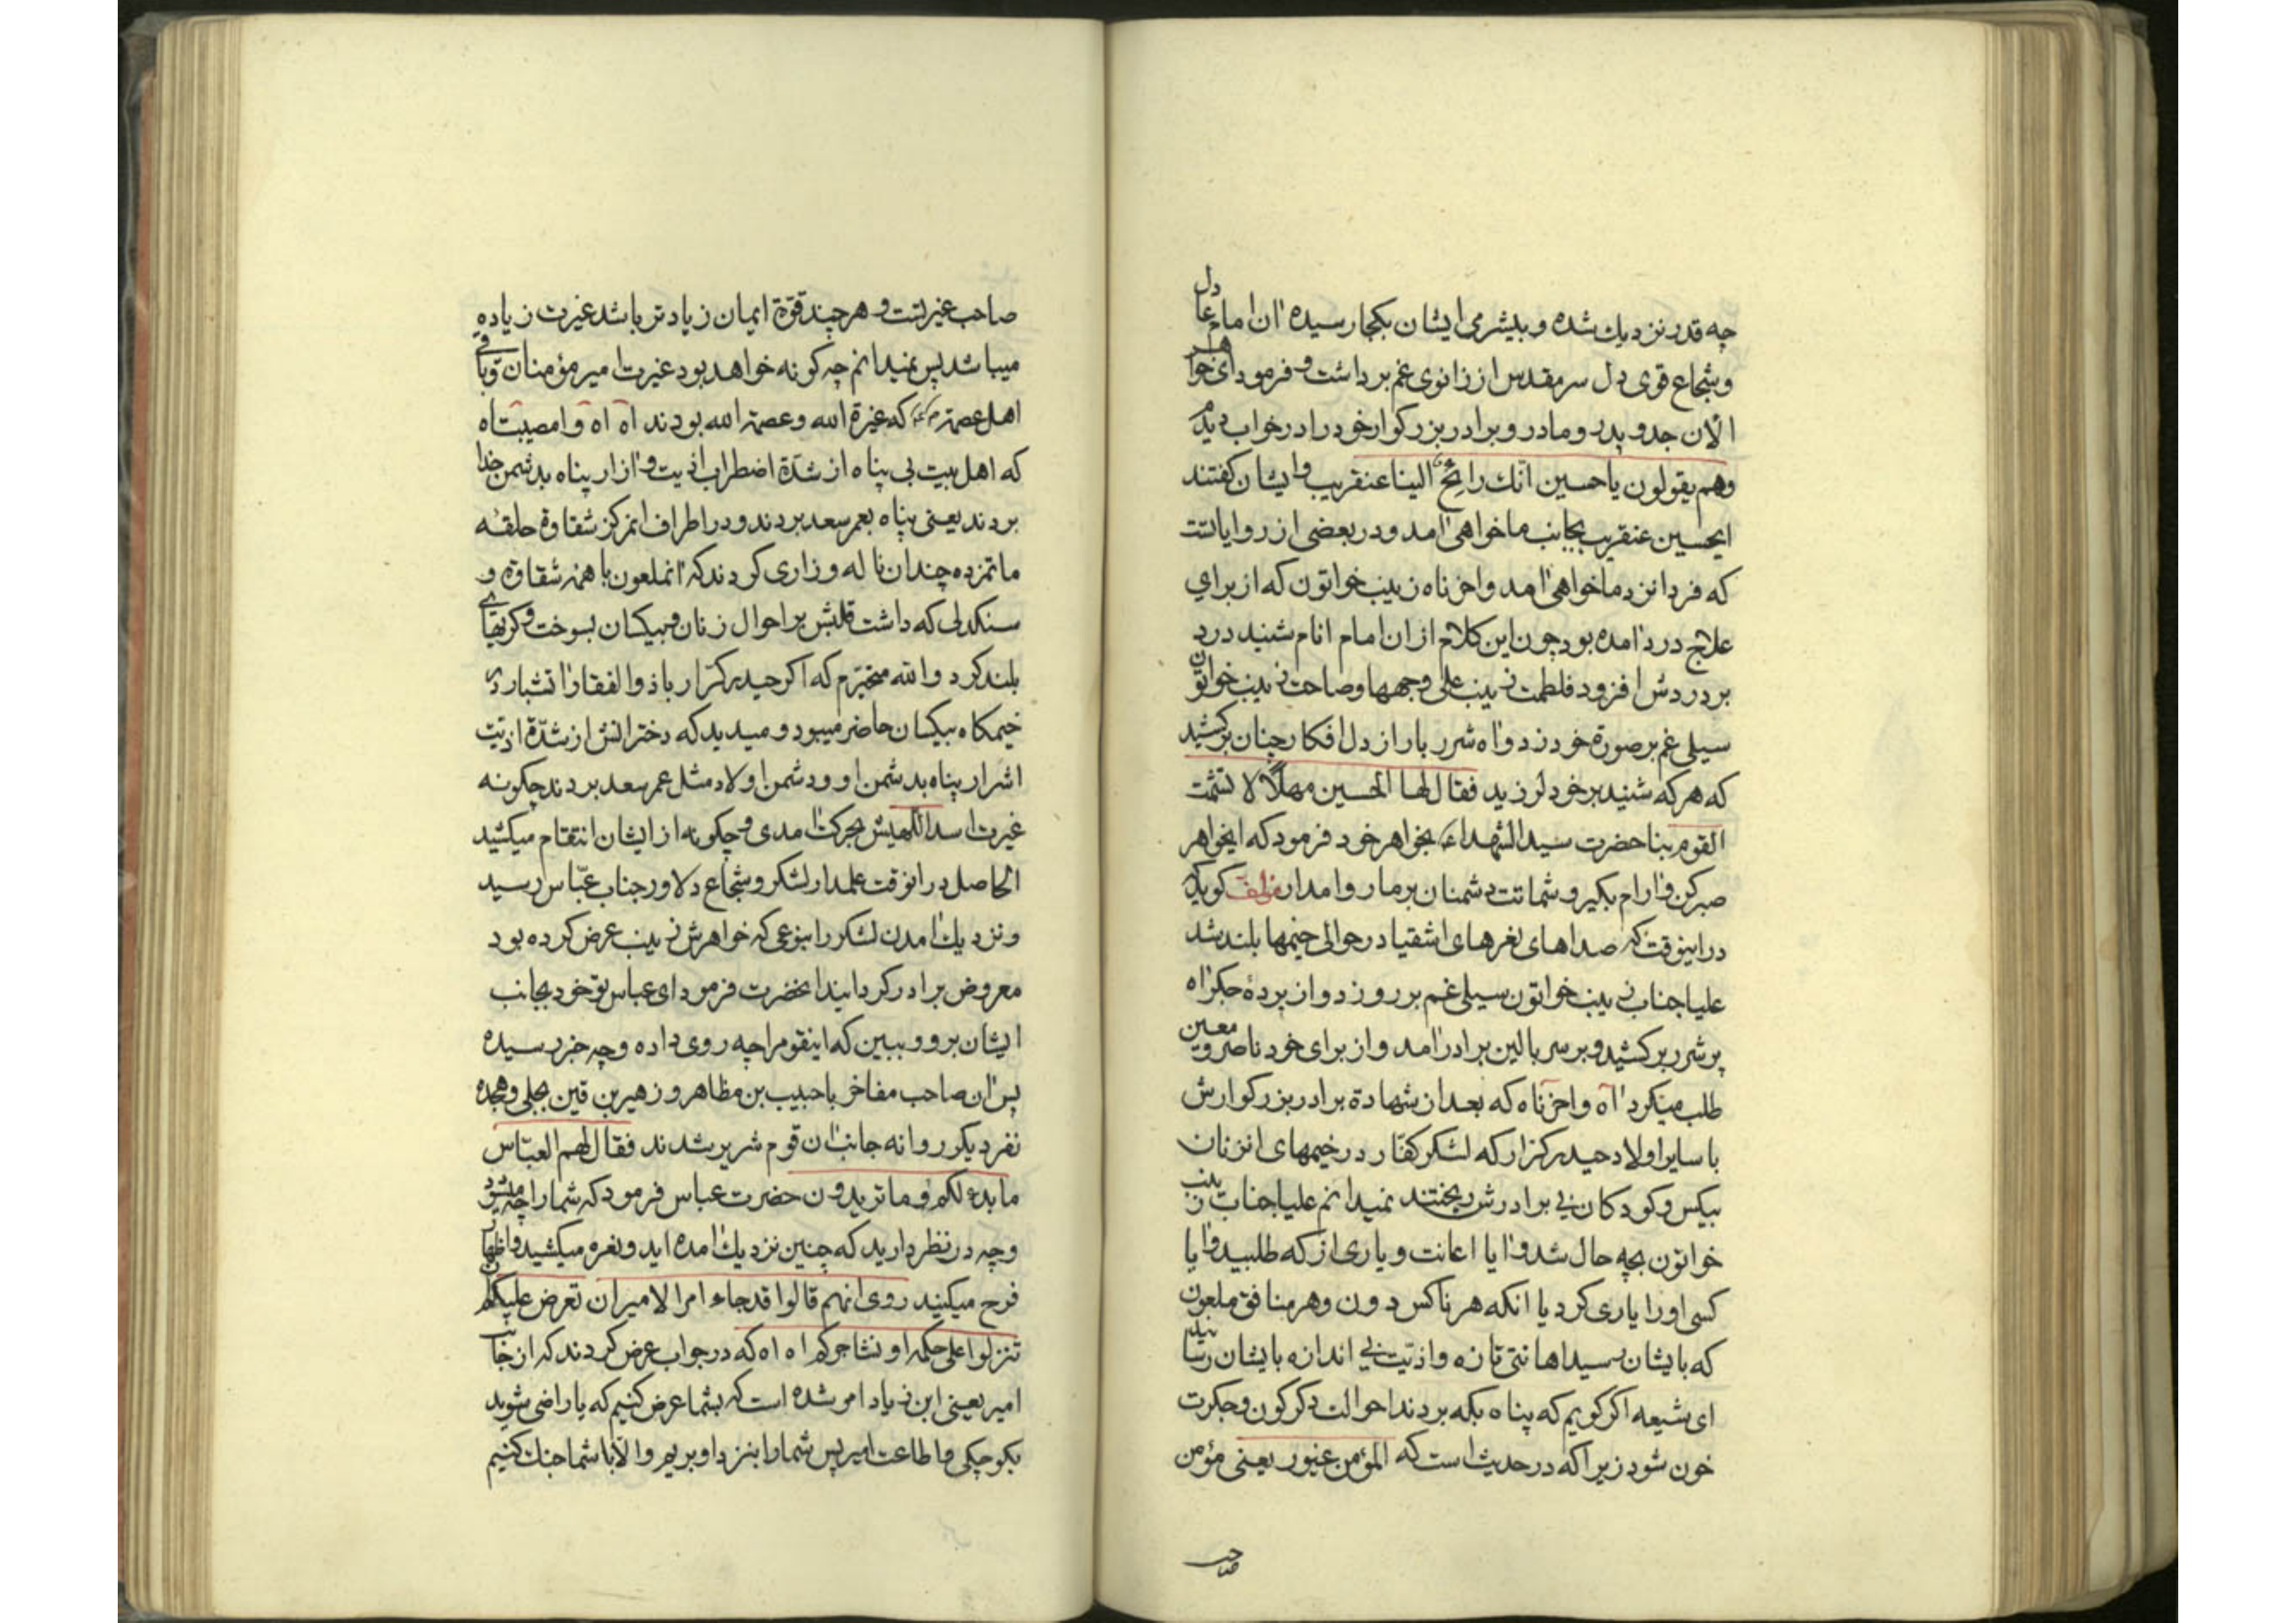 چه قدر نزدیك شده و بیشرمی ایشان بکجا رسیده آن امام عادل
و شجاع قوی دل سر مقدس از زانوی غم برداشت و فرمود ای خواهر
الآن جد و پدر و مادر و برادر بزرکوار خود را در خواب دیدم
وهم یقولون یا حسین انّك رائح الینا عنقریب و ایشان کفتند
ایحسین عنقریب بجانب ما خواهی آمد و در بعضی از روایاتست
که فردا نزد ما خواهی آمد واحزناه زینب خواتون که از برای
علاج درد آمده بود چون این کلام از ان امام انام شنید درد
بر دردش افزود فلطمت زینب علی وجهها وصاحت زینب خواتون
سیلی غم بر صورة خود زد و آه شرر بار از دل افکار چنان برکشید
که هر که شنید بر خود لرزید فقال لها الحسین مهلاً لا تشمت
القوم بنا حضرت سید الشهداء ع بخواهر خود فرمود که ایخواهر
صبر کن و آرام بکیر و شماتت دشمنان بر ما روا مدار مؤلف کوید که
در اینوقت که صداهای نعرهای اشقیا در حوالی خیمها بلند شد
علیا جناب زینب خواتون سیلی غم بر رو زد و از پردهٔ جکر آه
پر شرر برکشید و بر سر بالین برادر آمد و از برای خود ناصر و معین
طلب میکرد آه واحزناه که بعد از شهادة برادر بزرکوارش
با سایر اولاد حیدر کرار که لشکر کفّار در خیمهای انزنان
بیکس و کودکان بی برادرش ریختند نمیدانم علیا جناب زینب
خواتون بچه حال شد و آیا اعانت و یاری از که طلبید و آیا
کسی او را یاری کرد یا انکه هر ناکس دون و هر منافق ملعون
که بایشان رسید اهانتی تازه و اذیت بی اندازه بایشان رسانید
ای شیعه اکر کویم که پناه بکه بردند احوالت دکرکون و جکرت
خون شود زیرا که در حدیث است که المؤمن غیور یعنی مؤمن
صاحب
صاحب غیرتست و هر چند قوّة ایمان زیادتر باشد غیرت زیاده
میباشد پس نمیدانم چه کونه خواهد بود غیرت امیر مؤمنان و باقی
اهل عصمة که غیرة الله و عصمة الله بودند آه آه وامصیبتاه
که اهل بیت بی پناه از شدّة اضطراب اذیت و آزار پناه بدشمن خدا
بردند یعنی پناه بعمر سعد بردند و در اطراف انمرکز شقاوة حلقه
ماتمزده چندان ناله و زاری کردند که انملعون با همه شقاوة و
سنکدلی که داشت قلبش بر احوال زنان و بیکسان بسوخت و کر یهای
بلند کرد والله متحیّرم که اکر حیدر کرّار با ذو الفقار آتشبار در
خیمکاه بیکسان حاضر میبود و میدید که دخترانش از شدّة اذیت
اشرار پناه بدشمن او و دشمن اولاد مثل عمر سعد بردند چکونه
غیرت اسد اللهیش بحرکت آمدی و چکونه از ایشان انتقام میکشید
الحاصل در انوقت علمدار لشکر و شجاع دلاور جناب عبّاس رسید
و نزدیك آمدن لشکر را بنوعی که خواهرش زینب عرض کرده بود
معروض برادر کردانید انحضرت فرمود ای عباس تو خود بجانب
ایشان برو و ببین که اینقوم را چه روی داده و چه خبر رسیده
پس آن صاحب مفاخر با حبیب بن مظاهر و زهیر بن قین بجلی و هجده
نفر دیکر روانه جانب آن قوم شریر شدند فقال لهم العبّاس
ما بدء لکم و ما تریدون حضرت عباس فرمود که شما را چه میشود
و چه در نظر دارید که چنین نزدیك آمده اید و نعره میکشید و اظهار
فرح میکنید روی انهم قالوا قد جاء امر الامیر ان نعرض علیکم ان
تنزلوا علی حکمه او نناجزکم اه اه که در جواب عرض کردند که از جانب
امیر یعنی ابن زیاد امر شده است که بشما عرض کنیم که یا راضی شوید
بکوچکی و اطاعت امیر پس شما را بنزد او بریم و الّا با شما جنك کنیم